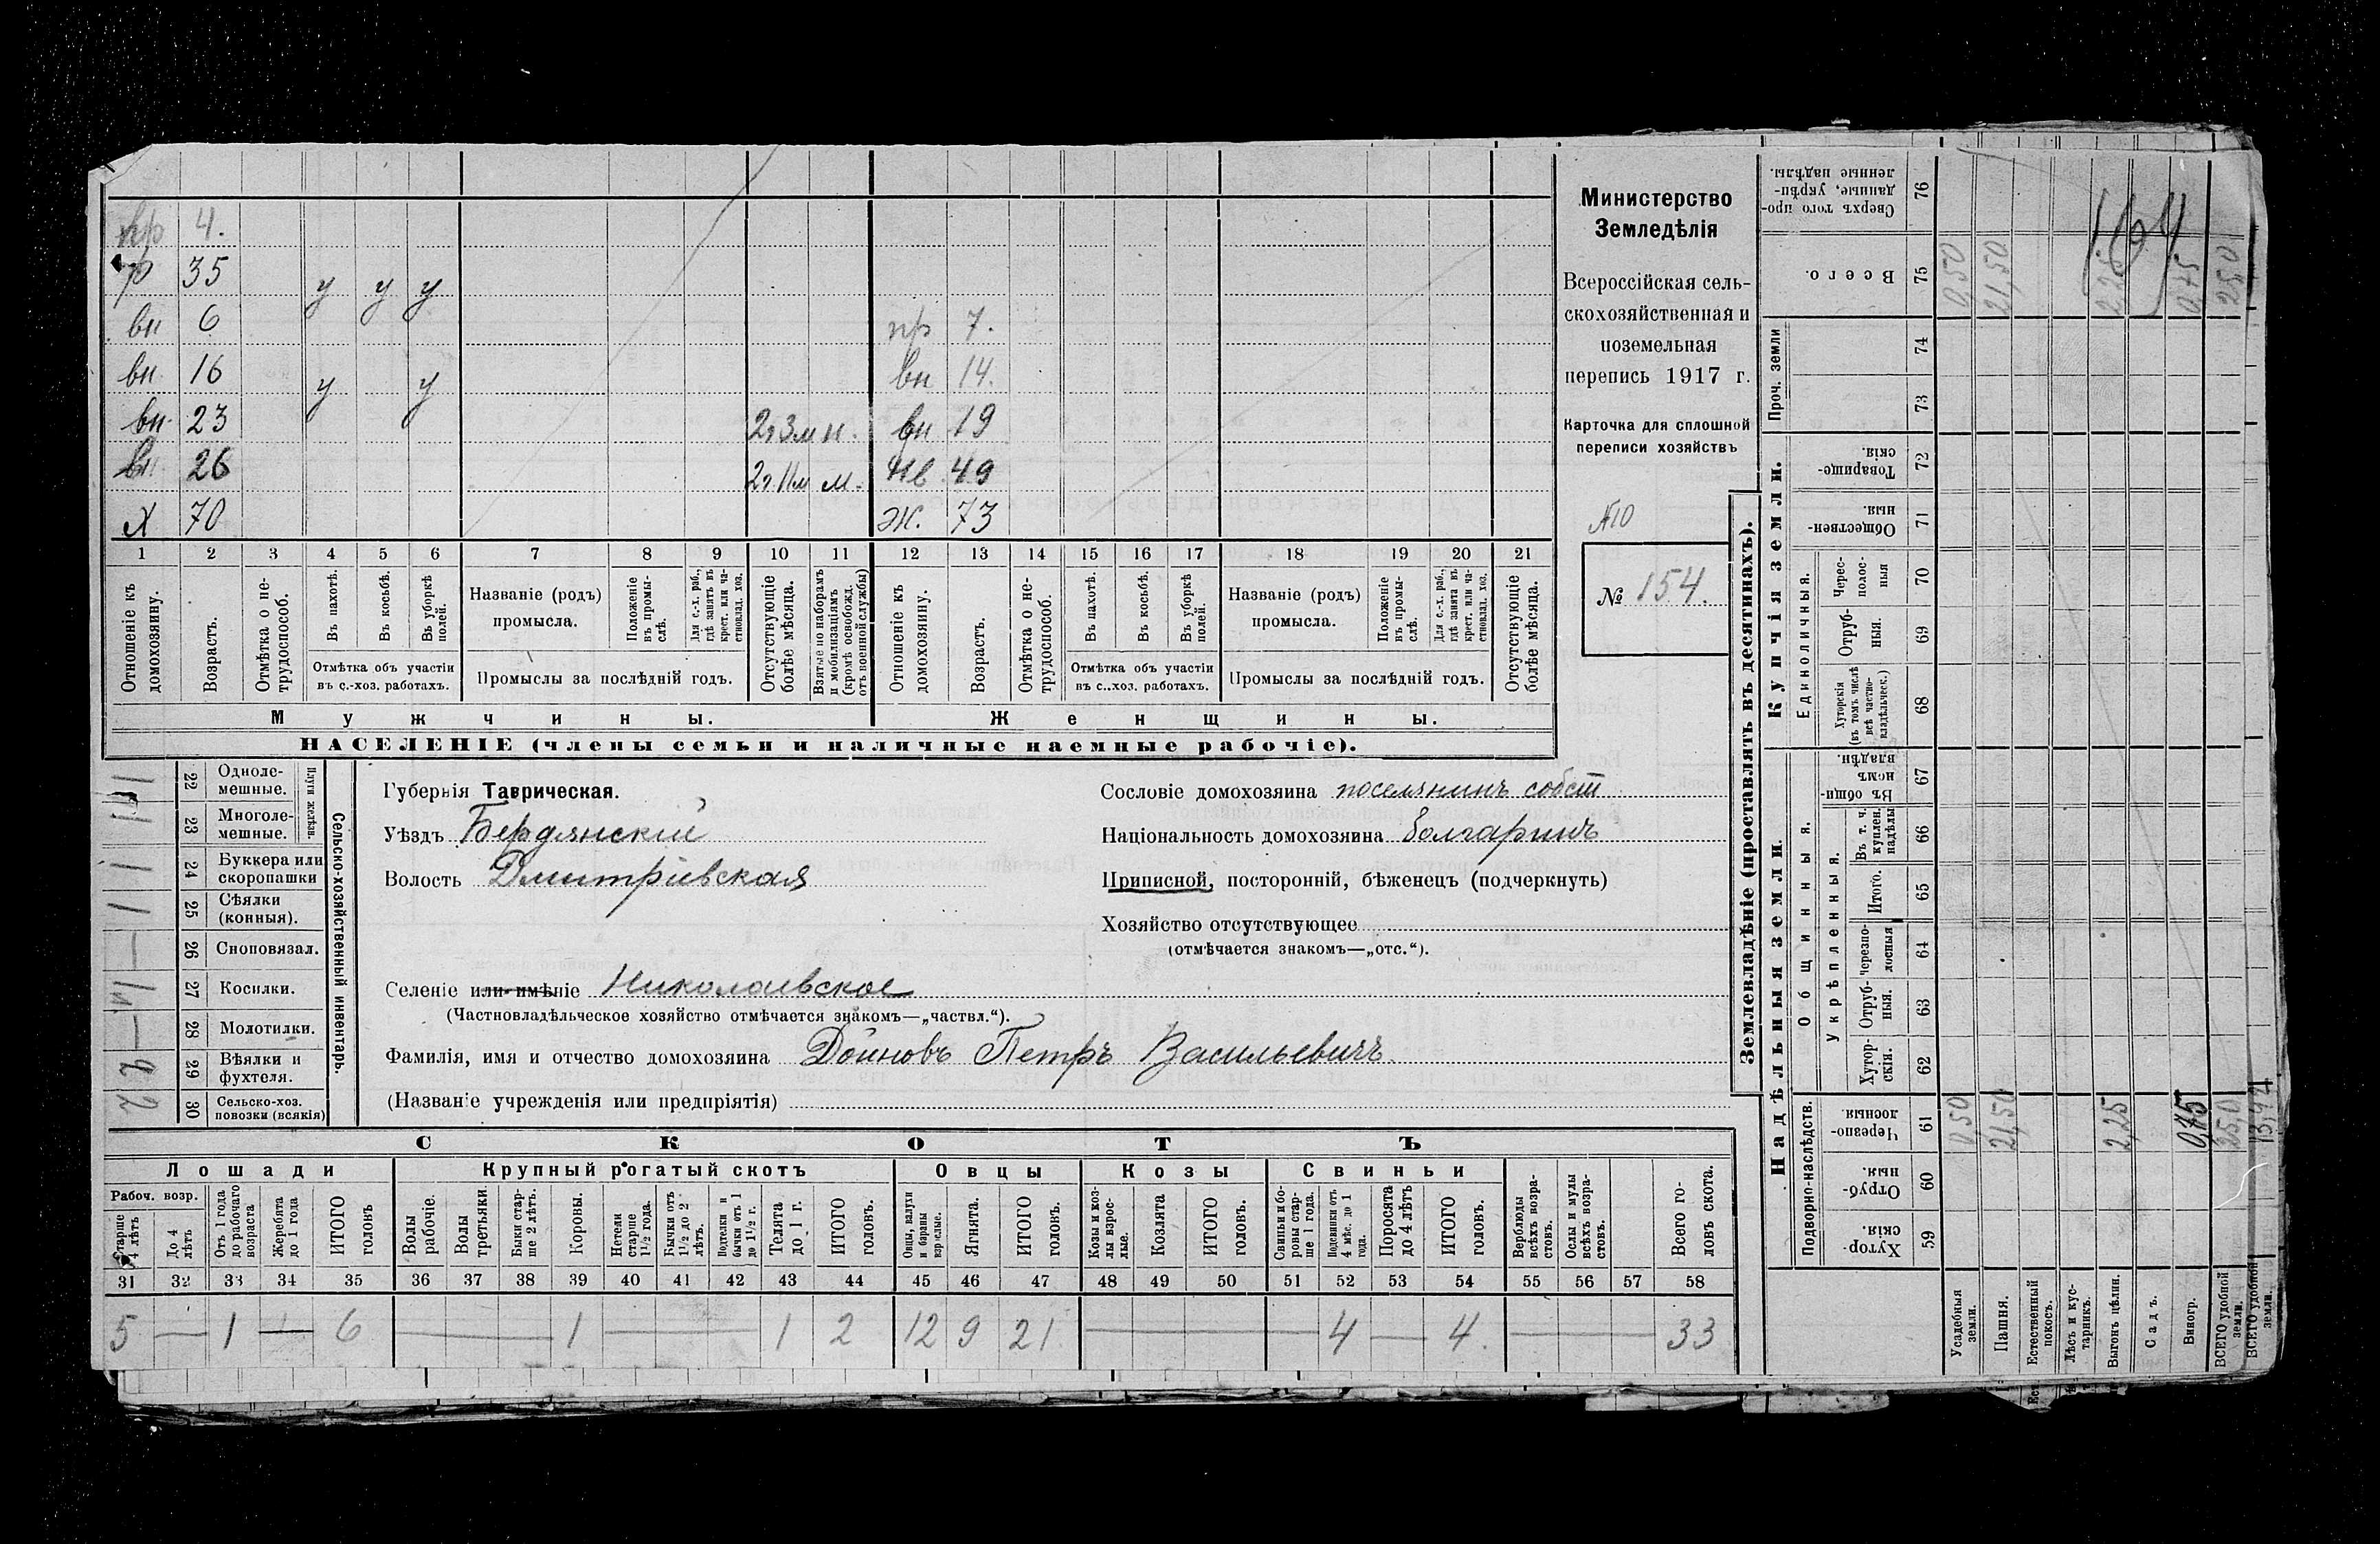 пр 4.
р 35 у у у
вн 6 пр 7.
вн 16 у у вн 14.
вн. 23 2г 3м н. вн 19
вн. 26 2г. 11м м. нв 49
х 70 ж. 73
1 2 3 4 5 6 7 8 9 10 11 12 13 14 15 16 17 18 19 20 21
Отношеніе къ домохозяину.
Возрастъ.
Отмѣтка о не-трудоспособ.
Въ пахотѣ.
Въ косьбѣ.
Въ уборкѣ полей.
Отмѣтка объ участіи въ с.-хоз. работахъ.
Названіе (родъ) промысла.
Положеніе въ промы-слѣ.
Для с.-х. раб., гдѣ занятъ въ крест. или ча-стновлад. хоз.
Промыслы за послѣдній годъ.
Отсутствующіе болѣе мѣсяца.
Взятые по наборамъ и мобилизаціямъ (кромѣ освобожд. отъ военной службы)
Отношеніе къ домохозяину.
Возрастъ.
Отмѣтка о не-трудоспособ.
Въ пахотѣ.
Въ косьбѣ.
Въ уборкѣ полей.
Отмѣтка объ участіи въ с..хоз. работахъ.
Названіе (родъ) промысла.
Положеніе въ промы-слѣ.
Для с.-х. раб., гдѣ занята въ крест. или ча-стновлад. хоз.
Промыслы за послѣдній годъ.
Отсутствующіе болѣе мѣсяца.
Мужчины. Женщины.
НАСЕЛЕНІЕ (члены семьи и наличные наемные рабочіе).
Министерство
Земледѣлія
Всероссійская сель-
скохозяйственная и
поземельная
перепись 1917 г.
Карточка для сплошной
переписи хозяйствъ
№10
№ 154.
Сельско-хозяйственный инвентарь.
Плуги желѣзн.
22 Одноле-мешные. 1
23 Многоле-мешные. 1
24 Буккера или скоропашки 1
25 Сѣялки (конныя). 1
26 Сноповязал. —
27 Косилки. 1
28 Молотилки. —
29 Вѣялки и фухтеля.
30 Сельско-хоз. повозки (всякія) 2
Губернія Таврическая.
Уѣздъ Бердянскій
Волость Дмитріевская
Селеніе или имѣніе Николаевское
(Частновладѣльческое хозяйство отмѣчается знакомъ—„частвл.“).
Фамилія, имя и отчество домохозяина Дойновъ Петръ Васильевичъ
(Названіе учрежденія или предпріятія)
Сословіе домохозяина поселянинъ собст
Національность домохозяина болгаринъ
Приписной, посторонній, бѣженецъ (подчеркнуть)
Хозяйство отсутствующее
(отмѣчается знакомъ—„отс.“).
СКОТЪ
Лошади Крупный рогатый скотъ Овцы Козы Свиньи
Рабоч. возр.
Старше 4 лѣтъ
До 4 лѣтъ
Отъ 1 года до рабочаго возраста
Жеребята до 1 года
ИТОГО головъ
Волы рабочіе.
Волы третьяки.
Быки стар-ше 2 лѣтъ.
Коровы.
Нетели старше 1½ года.
Бычки отъ 1½ до 2 лѣтъ.
Подтелки и бычки отъ 1 до 1½ г.
Телята до 1 г.
ИТОГО головъ.
Овцы, валухи и бараны взрослые.
Ягнята.
ИТОГО головъ.
Козы и коз-лы взрос-лые.
Козлята
ИТОГО головъ.
Свиньи и бо-ровы стар-ше 1 года.
Подсвинки отъ 4 мѣс. до 1 года.
Поросята до 4 лѣтъ
ИТОГО головъ.
Верблюды всѣхъ возра-стовъ.
Ослы и мулы всѣхъ возра-стовъ.
Всего го-ловъ скота.
31 32 33 34 35 36 37 38 39 40 41 42 43 44 45 46 47 48 49 50 51 52 53 54 55 56 57 58
5 — 1 — 6 — 1 — 1 2 12 9 21 — 4 — 4. — 33
Землевладѣніе (проставлять въ десятинахъ).
Надѣльныя земли. Купчія земли. Проч. земли
Подворно-наслѣдств.
Общинныя.
Укрѣпленныя.
Единоличныя.
Хутор-скія. 59
Отруб-ныя. 60
Черезпо-лосныя. 61
Хутор-скія. 62
Отруб-ныя. 63
Черезпо-лосныя 64
Итого. 65
Въ т. ч. куплен. надѣлы 66
Въ общин-номъ владѣн. 67
Хуторскія (въ томъ числѣ всѣ частно-владѣльческ.) 68
Отруб-ныя. 69
Черес-полос-ныя 70
Обществен-ныя. 71
Товарище-скія. 72
73
74
Всего. 75
Сверхъ того про-данные, укрѣп-ленные надѣлы. 76
Усадебныя земли. 0,50 0,50
Пашня. 21,50 21,50
Естественный покосъ.
Лѣсъ и кус-тарникъ.
Выгонъ цѣлин. 2,25 2,25
Садъ.
Виногр. 0,75 0,75
ВСЕГО удобной земли. 25,0 25,0
ВСЕГО удобной земли. 13,42
164